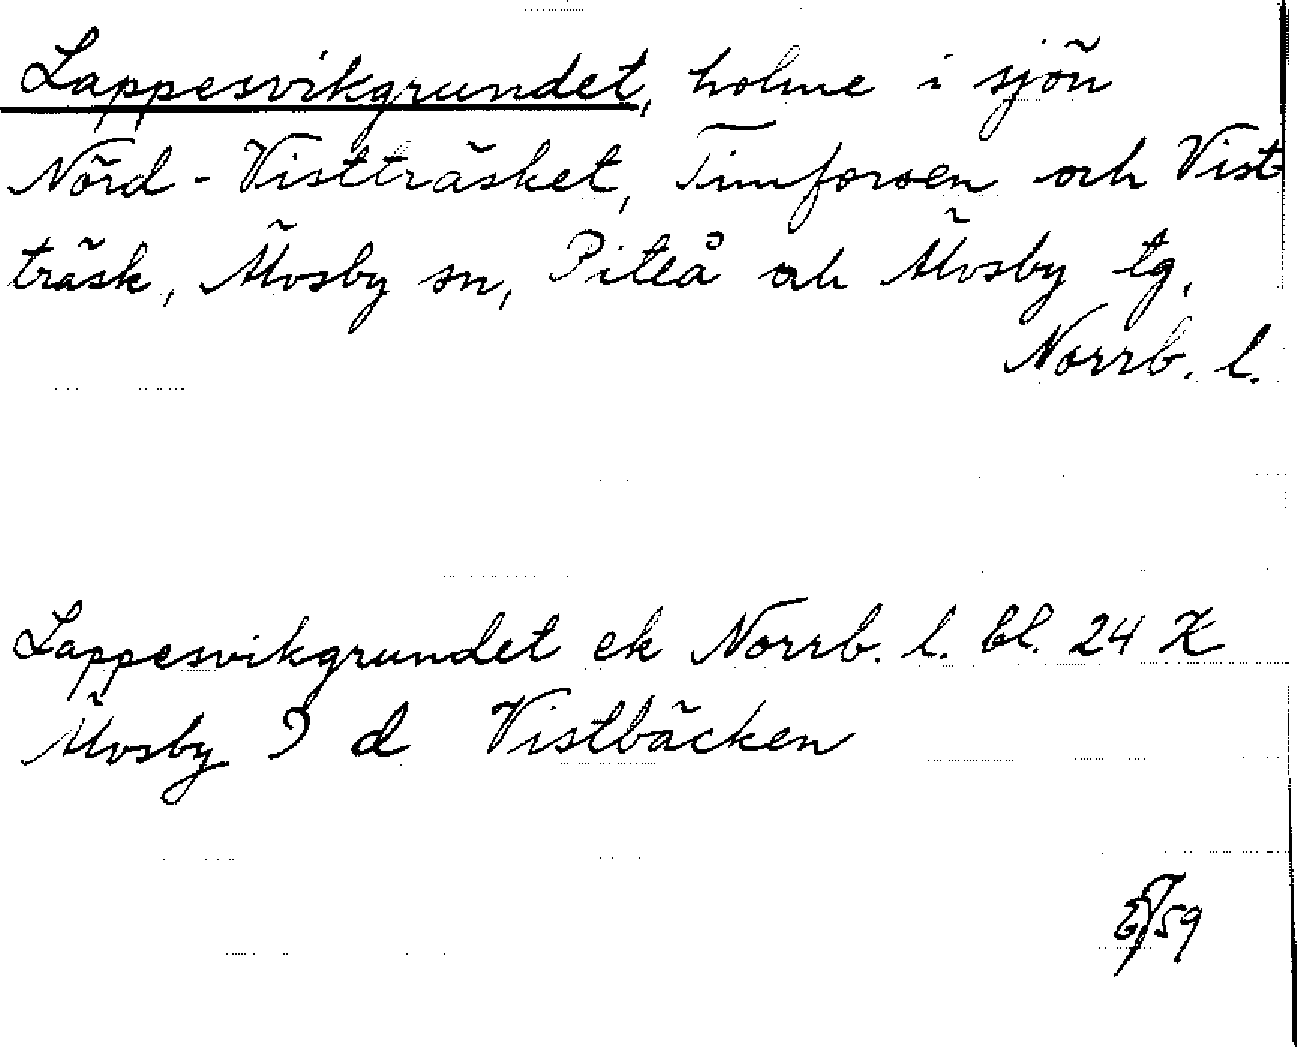 Lappesvikgrundet, holme i sjön
Nörd-Vistträsket, Timforsen och Vist
träsk, Älvsby sn, Piteå och Älvsby tg,
Norrb. l.
Lappesvikgrundet ek Norrb. l. bl. 24 X
Älvsby 9 d Vistbäcken
/59